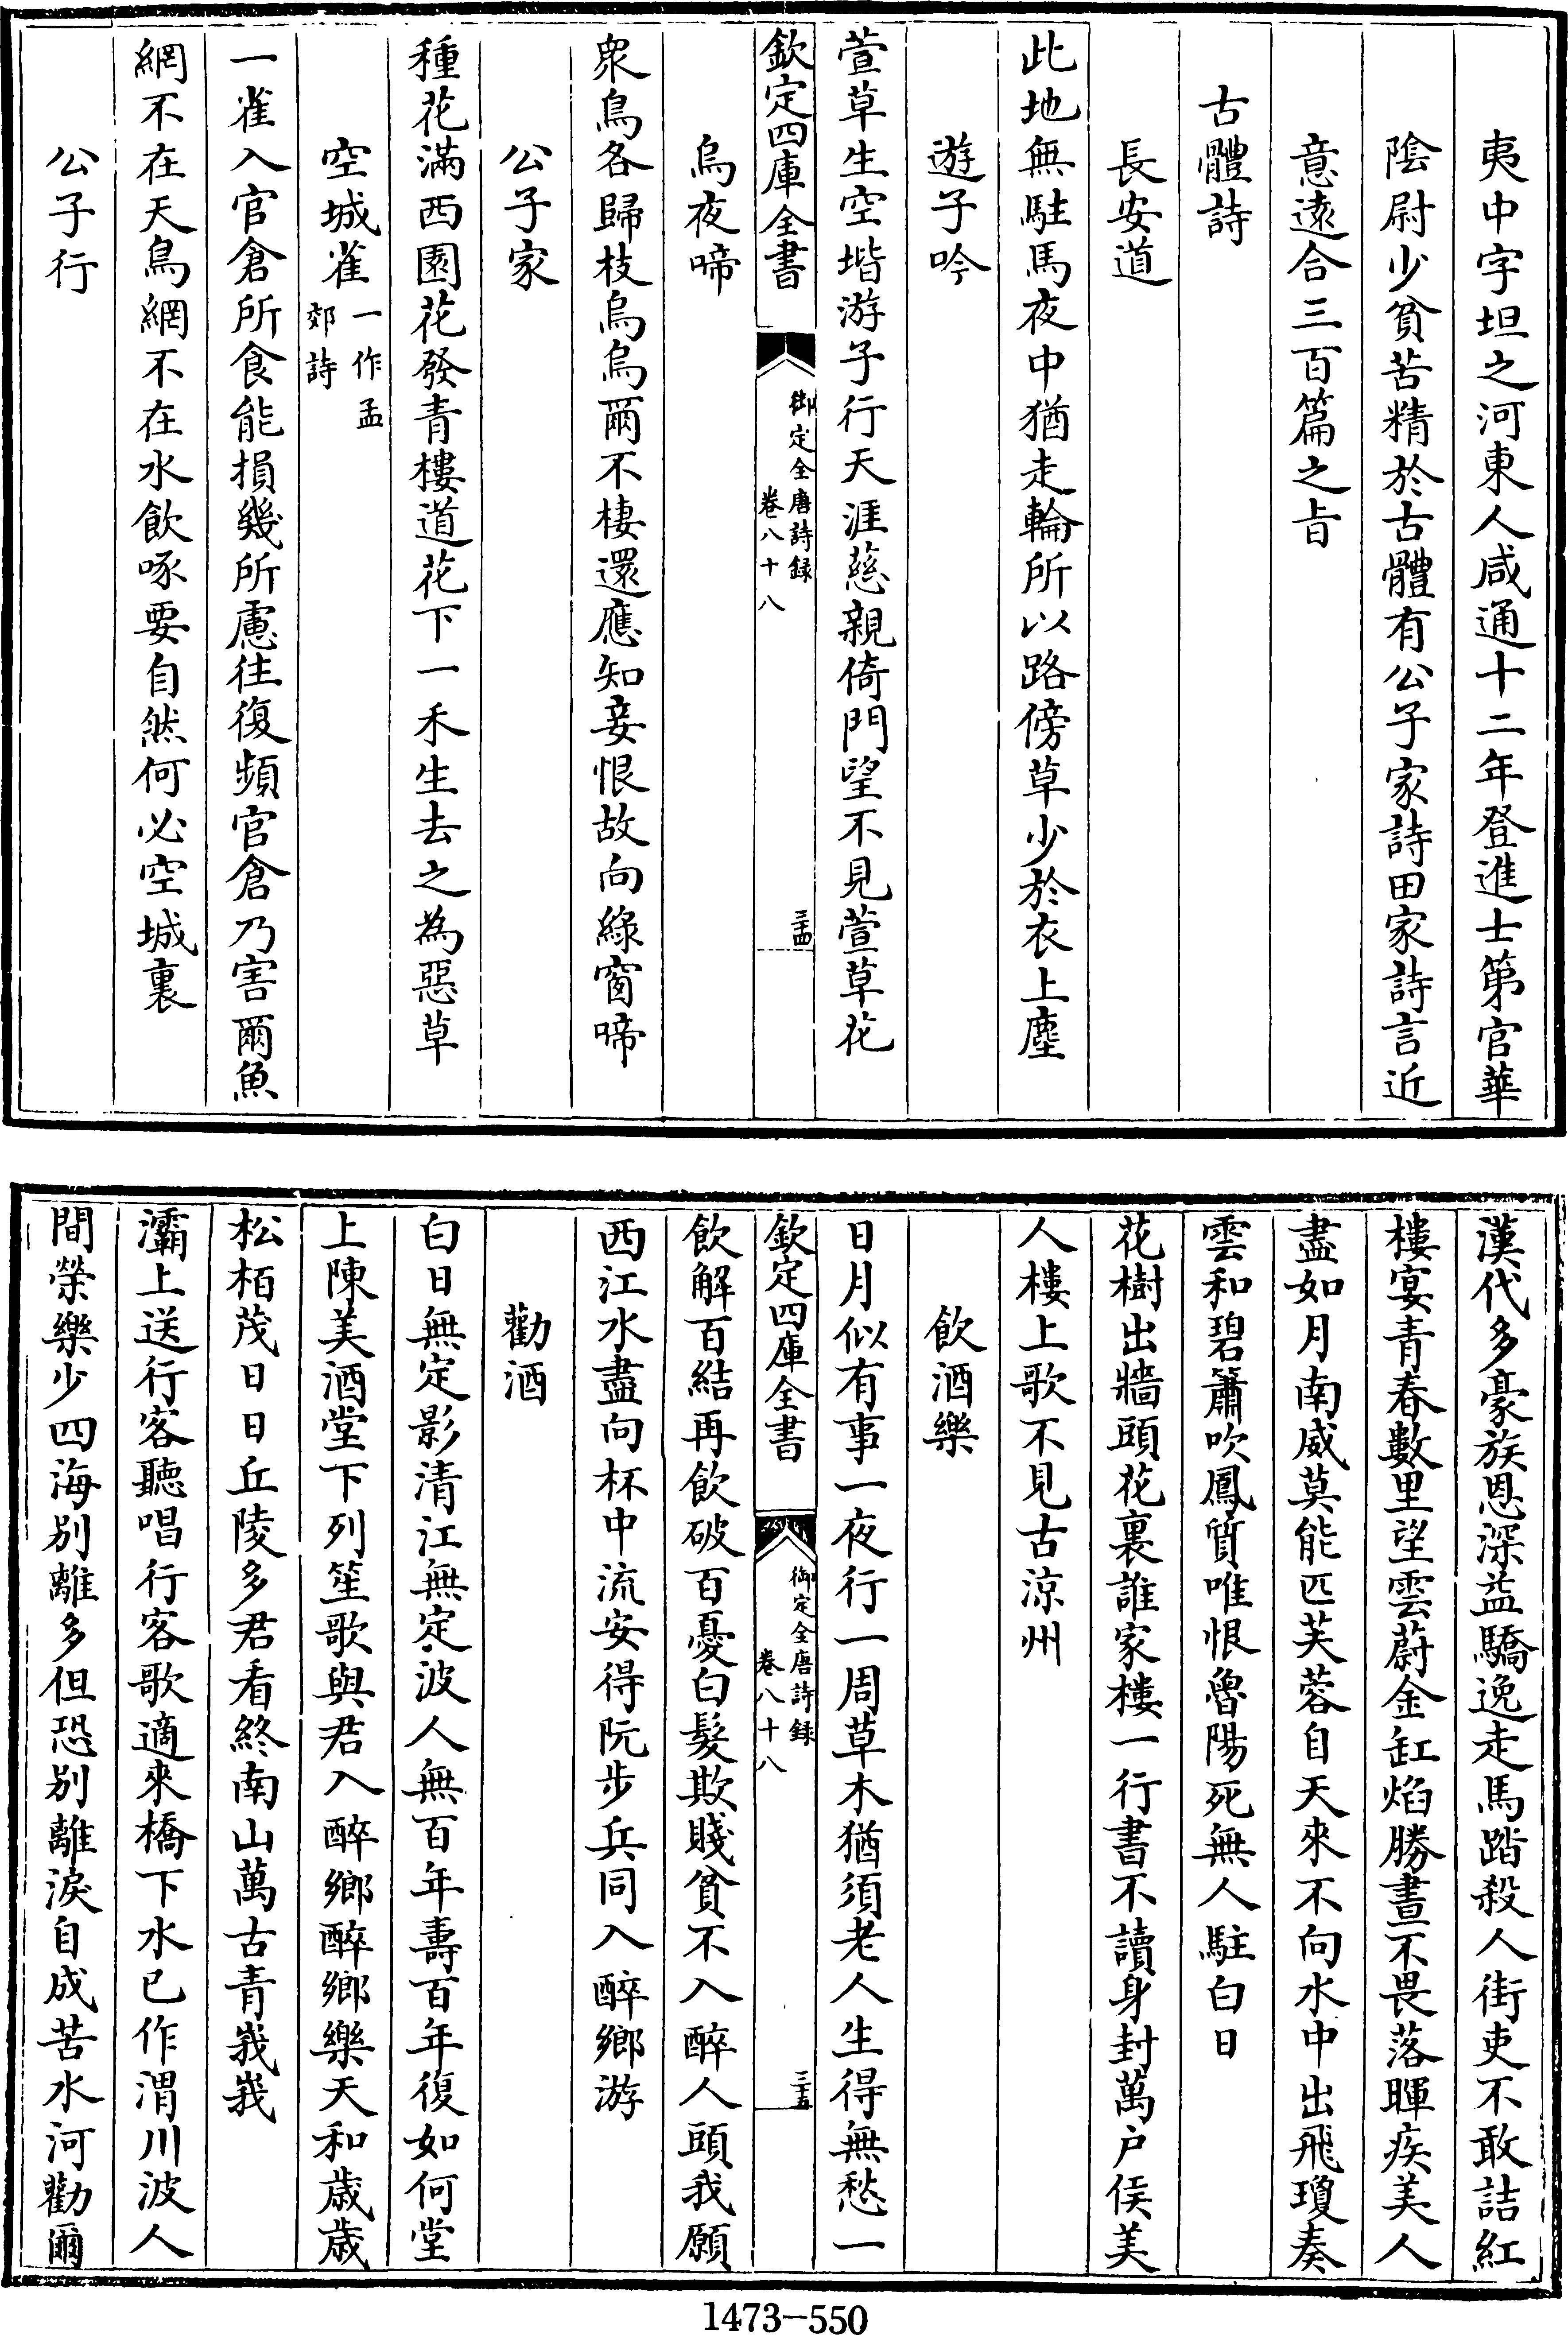 夷中字坦之河東人咸通十二年登進士第官華
隂尉少貧苦精於古體有公子家詩田家詩言近
意遠合三百篇之㫖
古體詩
長安道
此地無駐馬夜中猶走輪所以路傍草少於衣上塵
遊子吟
萱草生空堦游子行天涯慈親倚門望不見萱草花
欽定四庫全書
御定全唐詩録
卷八十八
三十四
烏夜啼
衆鳥各歸枝烏烏爾不棲還應知妾恨故向綠窗啼
公子家
種花滿西園花發青樓道花下一禾生去之為惡草
空城雀一作孟
郊詩
一雀入官倉所食能損幾所慮往復頻官倉乃害爾魚
網不在天鳥網不在水飲啄要自然何必空城裏
公子行
漢代多豪族恩深益驕逸走馬踏殺人街吏不敢詰紅
樓宴青春數里望雲蔚金缸焰勝晝不畏落暉疾美人
盡如月南威莫能匹芙蓉自天來不向水中出飛瓊奏
雲和碧簫吹鳳質唯恨魯陽死無人駐白日
花樹出牆頭花裏誰家樓一行書不讀身封萬户侯美
人樓上歌不見古涼州
飲酒樂
日月似有事一夜行一周草木猶須老人生得無愁一
欽定四庫全書
御定全唐詩録
卷八十八
三十五
飲解百結再飲破百憂白髮欺賤貧不入醉人頭我願
西江水盡向杯中流安得阮步兵同入醉鄉游
勸酒
白日無定影清江無定波人無百年壽百年復如何堂
上陳美酒堂下列笙歌與君入醉鄉醉鄉樂天和歳歳
松栢茂日日丘陵多君看終南山萬古青峩峩
灞上送行客聽唱行客歌適來橋下水已作渭川波人
間榮樂少四海别離多但恐别離淚自成苦水河勸爾
1473-550